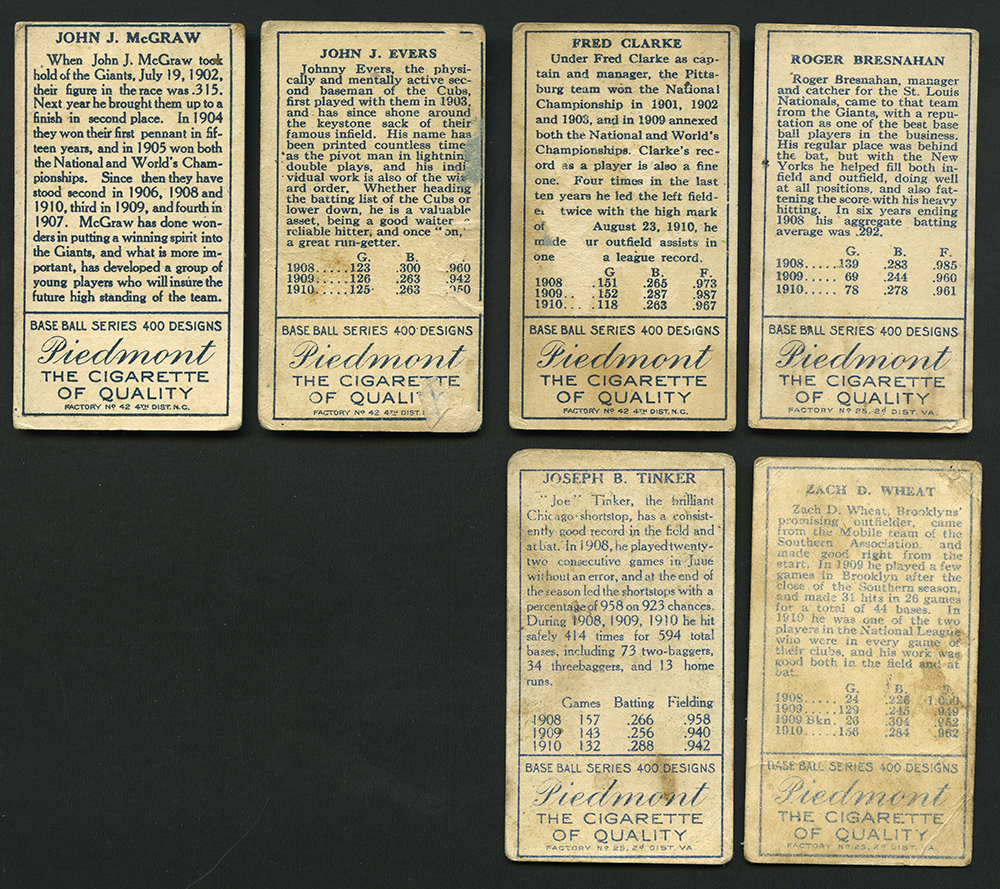 JOHN J. McGRAW
When John J. McGraw took
hold of the Giants, July 19, 1902,
their figure in the race was .315.
Next year he brought them up to a
finish in second place. In 1904
they won their first pennant in fif-
teen years, and in 1905 won both
the National and World's Cham-
pionships. Since then they have
stood second in 1906, 1908 and
1910, third in 1909, and fourth in
1907. McGraw has done won-
ders in putting a winning spirit into
the Giants, and what is more im-
portant, has developed a group of
young players who will insure the
future high standing of the team.
BASE BALL SERIES 400 DESIGNS
Piedmont
THE CIGARETTE
OF QUALITY
FACTORY Nº 42 4TH DIST. N.C.
JOHN J. EVERS
Johnny Evers, the physi-
cally and mentally active sec-
ond baseman of the Cubs,
first played with them in 1903,
and has since shone around
the keystone sack of their
famous infield. His name has
been printed countless time
as the pivot man in lightnin
double plays, and his indi
vidual work is also of the wiz
ard order. Whether heading
the batting list of the Cubs or
lower down, he is a valuable
asset, being a good waiter
reliable hitter, and once "on,"
a great run-getter.
G. B.
1908.....123 .300 .960
1909.....126 .263 .942
1910.....125 .263 .950
BASE BALL SERIES 400 DESIGNS
Piedmont
THE CIGARETTE
OF QUALI
FACTORY Nº 42 4TH DIST.
FRED CLARKE
Under Fred Clarke as cap-
tain and manager, the Pitts-
burg team won the National
Championship in 1901, 1902
and 1903, and in 1909 annexed
both the National and World's
Championships. Clarke's rec-
ord as a player is also a fine
one. Four times in the last
ten years he led the left field-
e twice with the high mark
of August 23, 1910, he
made ur outfield assists in
one a league record.
G. B. F.
1908 .151 .265 .973
1909... 152 .287 .987
1910.....118 .263 .967
BASE BALL SERIES 400 DESIGNS
Piedmont
THE CIGARETTE
OF QUALITY
FACTORY Nº 42 4TH DIST. N.C.
ROGER BRESNAHAN
Roger Bresnahan, manager
and catcher for the St. Louis
Nationals, came to that team
from the Giants, with a repu-
tation as one of the best base
ball players in the business.
His regular place was behind
the bat, but with the New
Yorks he helped fill both in-
field and outfield, doing well
at all positions, and also fat-
tening the score with his heavy
hitting. In six years ending
1908 his aggregate batting
average was .292.
G. B. F.
1908.....139 .283 .985
1909..... 69 .244 .960
1910..... 78 .278 .961
BASE BALL SERIES 400 DESIGNS
Piedmont
THE CIGARETTE
OF QUALITY
FACTORY Nº 25, 2d DIST. VA.
JOSEPH B. TINKER
"Joe" Tinker, the brilliant
Chicago shortstop, has a consist-
ently good record in the field and
at bat. In 1908, he played twenty-
two consecutive games in June
without an error, and at the end of
the season led the shortstops with a
percentage of 958 on 923 chances.
During 1908, 1909, 1910 he hit
safely 414 times for 594 total
bases, including 73 two-baggers,
34 threebaggers, and 13 home
runs.
Games Batting Fielding
1908 157 .266 .958
1909 143 .256 .940
1910 132 .288 .942
BASE BALL SERIES 400 DESIGNS
Piedmont
THE CIGARETTE
OF QUALITY
FACTORY Nº 25, 2d DIST. VA.
ZACH D. WHEAT
Zach D. Wheat, Brooklyns'
promising outfielder, came
from the Mobile team of the
Southern Association and
made good right from the
start. In 1909 he played a few
games in Brooklyn after the
close of the Southern season,
and made 31 hits in 26 games
for a total of 44 bases. In
1910 he was one of the two
players in the National League
who were in every game of
their clubs, and his work was
good both in the field and at
bat.
G. B. F.
1908..... 24 .226 1.000
1909.....129 .245 .949
1909 Bkn. 26 .304 .952
1910.....156 .284 .962
BASE BALL SERIES 400 DESIGNS
Piedmont
THE CIGARETTE
OF QUALITY
FACTORY Nº 25, 2d DIST. VA.